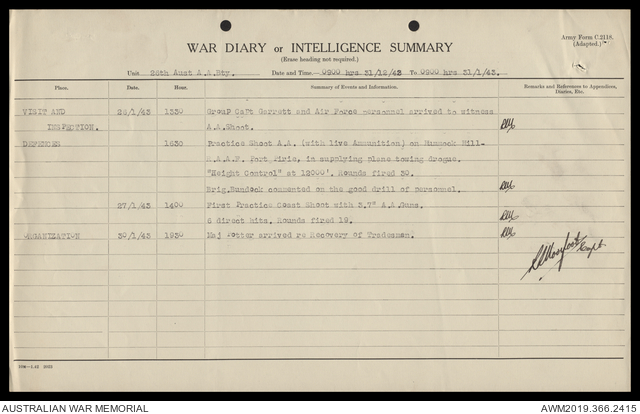 Army Form C.2118.
(Adapted.)
WAR DIARY or INTELLIGENCE SUMMARY
(Erase heading not required.)
Unit 26th Aust A.A.Bty. Date and Time—0900 hrs 31/12/42 To 0900 hrs 31/1/43.
Place. Date. Hour. Summary of Events and Information. Remarks and References to Appendices, Diaries, Etc.
VISIT AND 26/1/43 1330 Group Capt Garrett and Air Force personnel arrived to witness
INSPECTION. A.A.Shoot.
DEFENCES 1630 Practice Shoot A.A. (with live Ammunition) on Hummock Hill-
R.A.A.F. Port Pirie, in supplying plane towing drogue.
"Height Control" at 12000'. Rounds fired 30.
Brig.Bundock commented on the good drill of personnel.
27/1/43 1400 First Practice Coast Shoot with 3.7" A.A.Guns.
6 direct hits. Rounds fired 19.
ORGANIZATION 30/1/43 1930 Maj Potter arrived re Recovery of Tradesmen.
Capt
AUSTRALIAN WAR MEMORIAL
AWM2019.366.2415